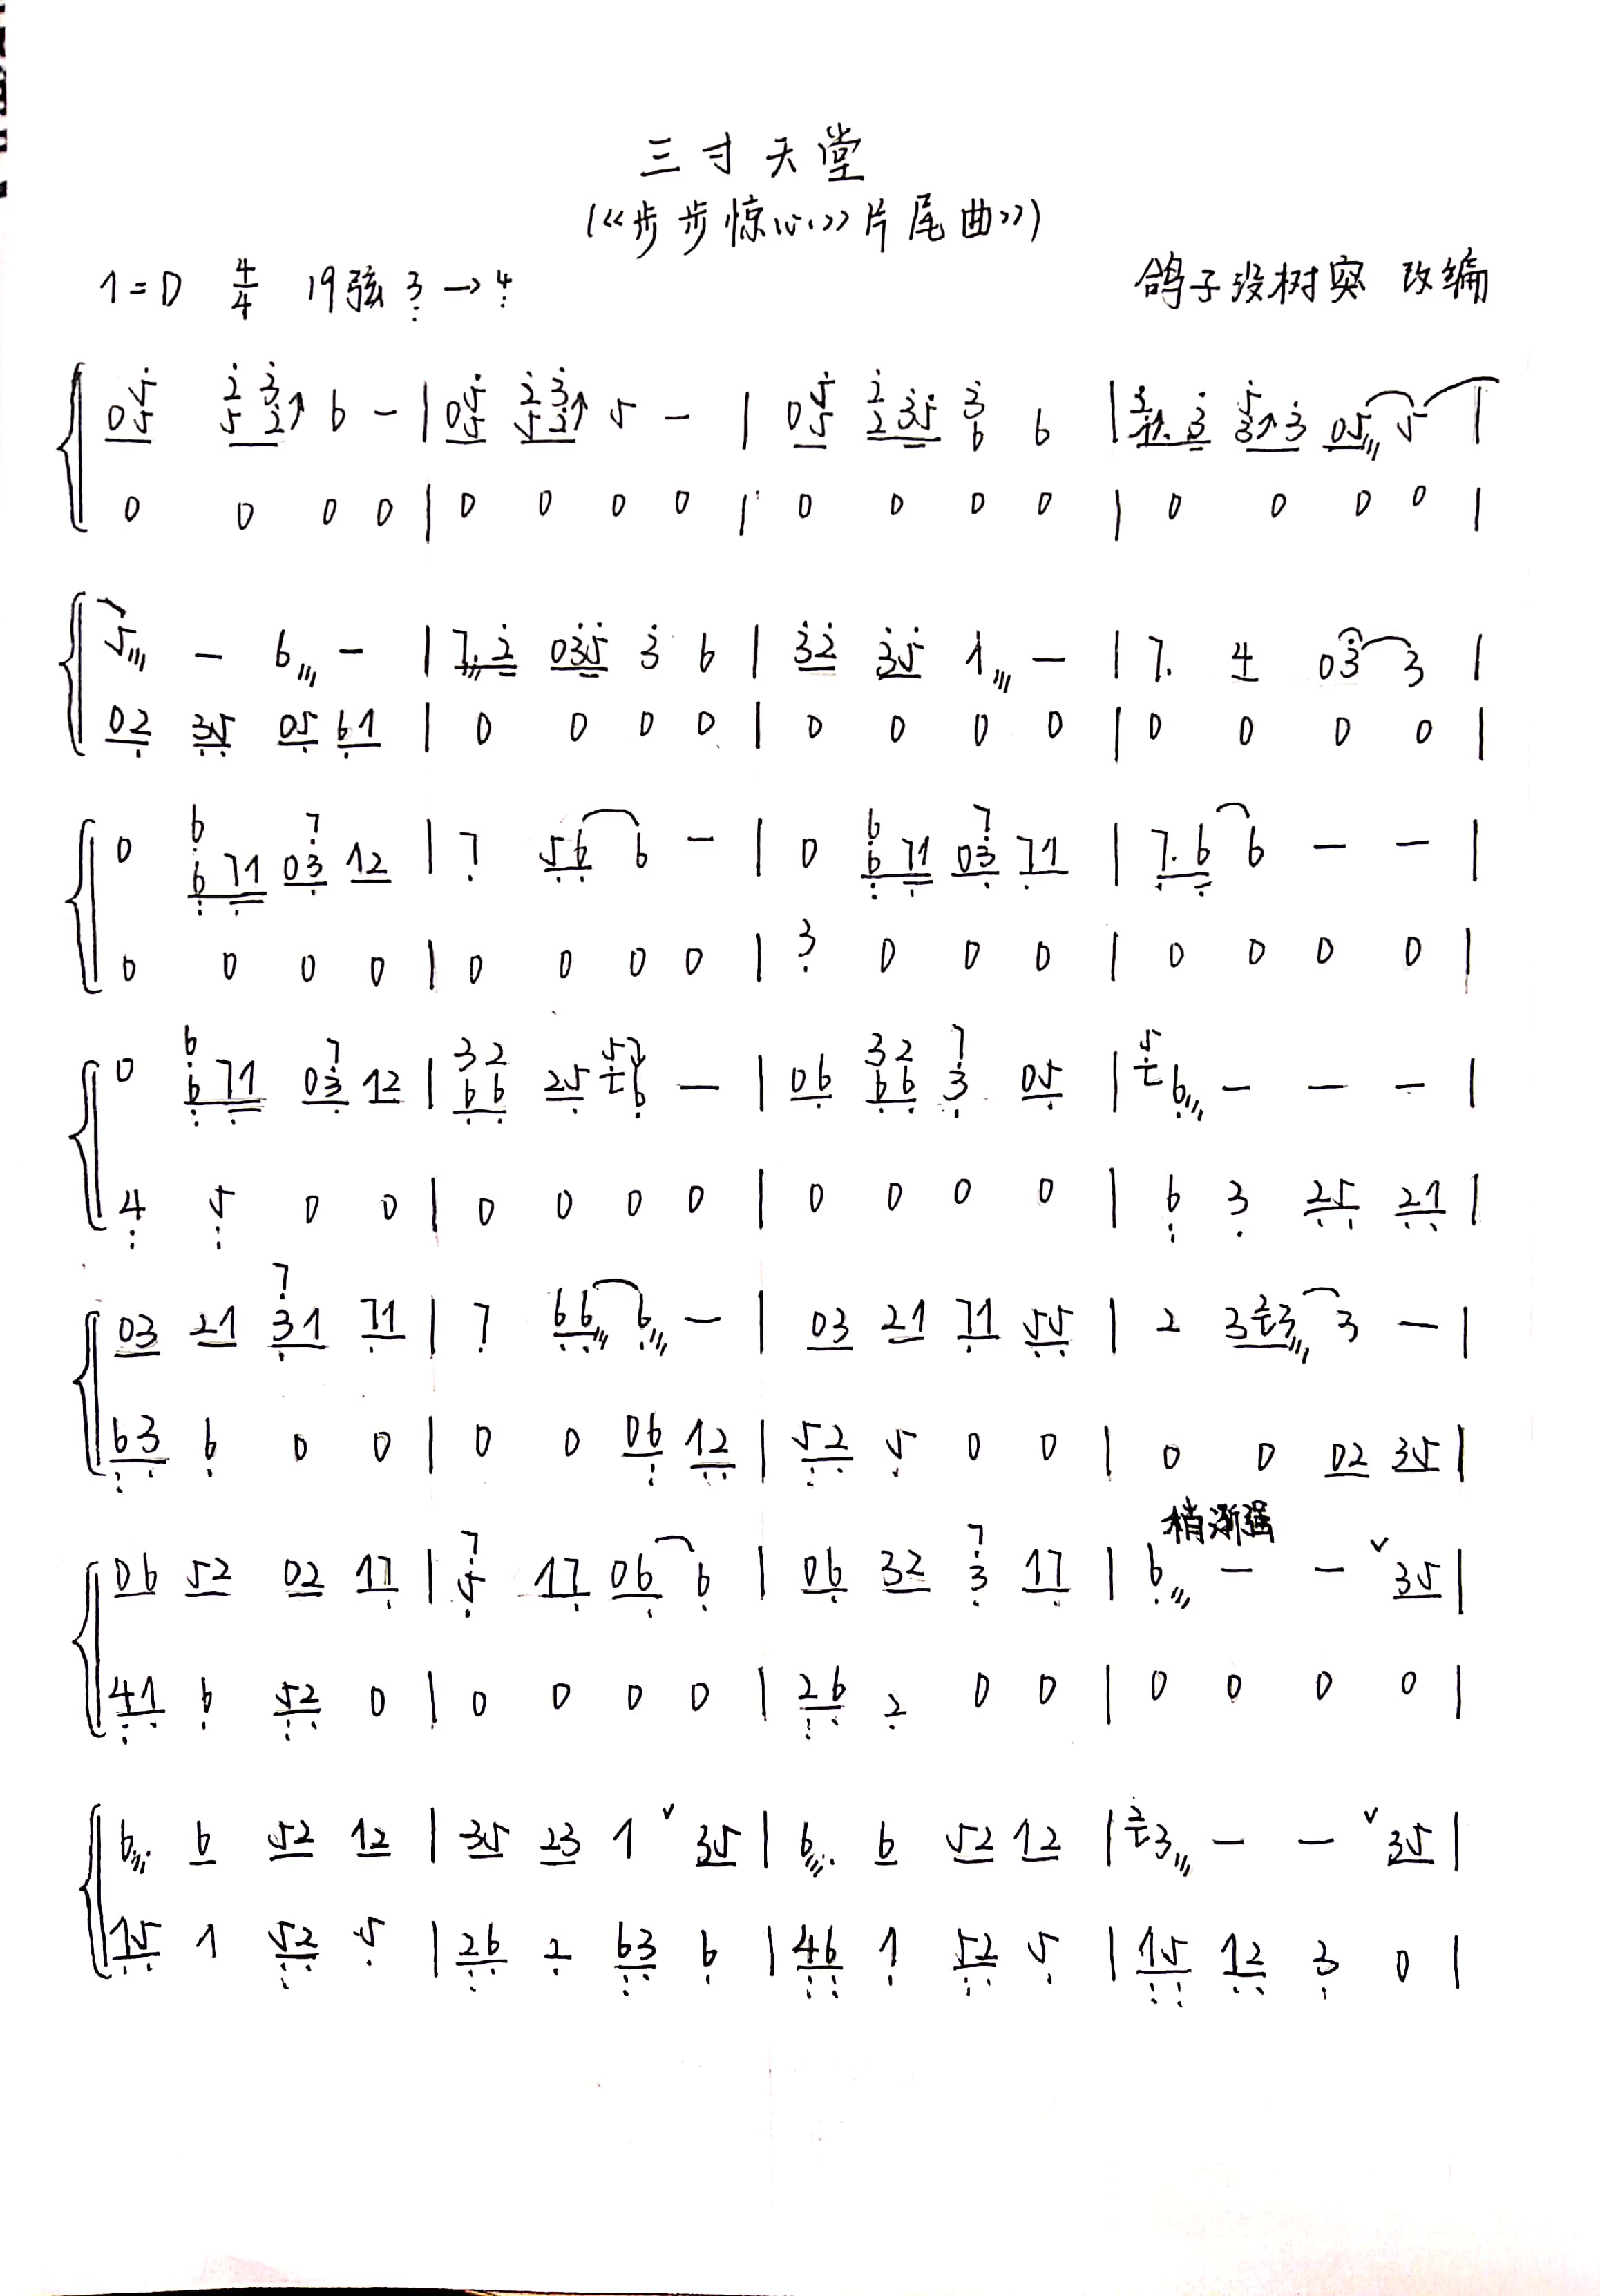 三寸天堂
(《步步惊心》片尾曲)
1=D 4/4 19弦 3̣→4̣̣ 鸽子没树突 改编
0 5̇/5 2̇/5 3̇/2̇↑ 6 - | 0 5̇/5 2̇/5 3̇/2̇↑ 5 - | 0 5̇/5 2̇/2 3̇ 5̇ 3̇/6 6 | 3̇ 5̇/3̇↑ 3̇ 05 5 |
0 0 0 0 | 0 0 0 0 | 0 0 0 0 | 0 0 0 0 |
5 - 6 - | 7. 2̇ 03̇5̇ 3̇ 6 | 3̇2̇ 3̇5̇ 1̇ - | 7. 4 03̇ 3 |
02̣ 3̣5̣ 05̣ 6̣1 | 0 0 0 0 | 0 0 0 0 | 0 0 0 0 |
0 6̣/6̣̣ 7̣1 0 7̣/3̣ 12 | 7̣ 5̣6̣ 6 - | 0 6̣/6̣̣ 7̣1 0 7̣/3̣ 7̣1 | 7̣. 6̣ 6 - - |
0 0 0 0 | 0 0 0 0 | 3̣ 0 0 0 | 0 0 0 0 |
0 6̣/6̣̣ 7̣1 0 7̣/3̣ 12 | 3/6̣ 2/6̣ 25̣ 5̣ 6̣ - | 06̣ 3/6̣ 2/6̣ 7̣/3̣ 05̣ | 5̣ 6̣ - - - |
4̣̣ 5̣̣ 0 0 | 0 0 0 0 | 0 0 0 0 | 6̣̣ 3̣ 2̣5̣ 2̣1̣ |
03 21 7̣/3̣ 1 7̣1 | 7̣ 6̣6̣ 6̣ - | 03 21 7̣1 5̣5̣ | 2 3 2 3 3 - |
6̣̣3̣ 6̣ 0 0 | 0 0 06̣̣ 1̣2̣ | 5̣̣2̣ 5̣ 0 0 | 0 0 02 35 |
稍渐强
06 52 02 17̣ | 7̣/5̣ 17̣ 06̣ 6̣ | 06̣ 32 7̣/3̣ 17̣ | 6̣ - - ˅ 35 |
4̣̣1̣ 6̣ 5̣̣2̣ 0 | 0 0 0 0 | 2̣̣6̣̣ 2̣ 0 0 | 0 0 0 0 |
6. 6 52 12 | 35 23 1 ˅ 35 | 6. 6 52 12 | 2 3 - - ˅ 35 |
1̣5̣ 1 5̣̣2̣ 5̣ | 2̣6̣ 2̣ 6̣̣3̣ 6̣ | 4̣̣6̣̣ 1̣ 5̣̣2̣ 5̣ | 1̣̣5̣̣ 1̣2̣ 3̣ 0 |